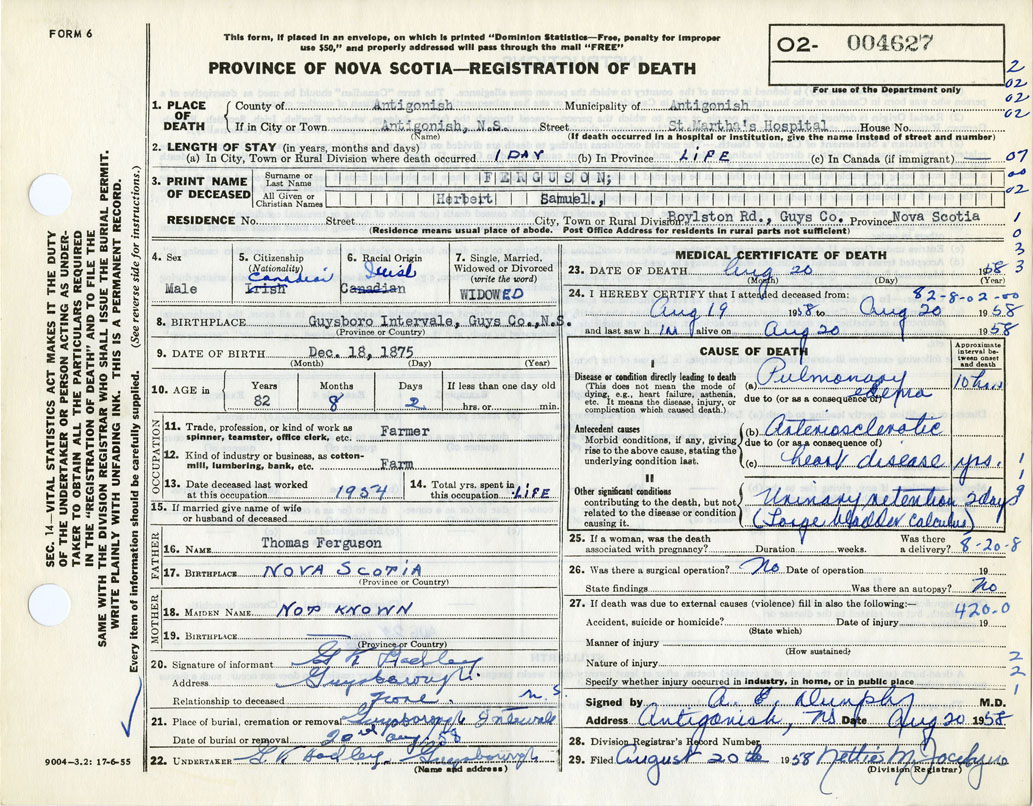 FORM 6
This form, if placed in an envelope, on which is printed "Dominion Statistics—Free, penalty for improper
use $50," and properly addressed will pass through the mail "FREE"
PROVINCE OF NOVA SCOTIA—REGISTRATION OF DEATH
O2- 004627
For use of the Department only
2
02
02
02
07
00
02
1
0
3
3
SEC. 14—VITAL STATISTICS ACT MAKES IT THE DUTY
OF THE UNDERTAKER OR PERSON ACTING AS UNDER-
TAKER TO OBTAIN ALL THE PARTICULARS REQUIRED
IN THE "REGISTRATION OF DEATH" AND TO FILE THE
SAME WITH THE DIVISION REGISTRAR WHO SHALL ISSUE THE BURIAL PERMIT.
WRITE PLAINLY WITH UNFADING INK. THIS IS A PERMANENT RECORD.
Every item of information should be carefully supplied. (See reverse side for instructions.)
1. PLACE OF DEATH
County of Antigonish Municipality of Antigonish
If in City or Town Antigonish, N.S. Street St. Martha's Hospital House No.
(Name) (If death occurred in a hospital or institution, give the name instead of street and number)
2. LENGTH OF STAY (in years, months and days)
(a) In City, Town or Rural Division where death occurred 1 DAY (b) In Province LIFE (c) In Canada (if immigrant) —
3. PRINT NAME OF DECEASED
Surname or Last Name FERGUSON;
All Given or Christian Names Herbert Samuel.,
RESIDENCE No. Street City, Town or Rural Division Boylston Rd., Guys Co. Province Nova Scotia
(Residence means usual place of abode. Post Office Address for residents in rural parts not sufficient)
4. Sex
Male
5. Citizenship
(Nationality)
Irish
6. Racial Origin
Irish
Canadian
7. Single, Married,
Widowed or Divorced
(write the word)
WIDOWED
8. BIRTHPLACE Guysboro Intervale, Guys Co., N.S.
(Province or Country)
9. DATE OF BIRTH Dec. 18, 1875
(Month) (Day) (Year)
10. AGE in
Years 82
Months 8
Days 2
If less than one day old
hrs. or min.
OCCUPATION
11. Trade, profession, or kind of work as
spinner, teamster, office clerk, etc. Farmer
12. Kind of industry or business, as cotton-
mill, lumbering, bank, etc. Farm
13. Date deceased last worked
at this occupation 1954
14. Total yrs. spent in
this occupation LIFE
15. If married give name of wife
or husband of deceased
FATHER
16. NAME Thomas Ferguson
17. BIRTHPLACE NOVA SCOTIA
(Province or Country)
MOTHER
18. MAIDEN NAME NOT KNOWN
19. BIRTHPLACE
(Province or Country)
20. Signature of informant
Address Guysborough
Relationship to deceased None. N.S.
21. Place of burial, cremation or removal Guysborough Intervale
Date of burial or removal 20th Aug. 58
22. UNDERTAKER Guysborough
(Name and address)
9004—3.2: 17-6-55
MEDICAL CERTIFICATE OF DEATH
23. DATE OF DEATH Aug 20 1958
(Month) (Day) (Year)
24. I HEREBY CERTIFY that I attended deceased from: 82-8-02-00
Aug 19 1958 to Aug 20 1958
and last saw him alive on Aug 20 1958
CAUSE OF DEATH
Approximate
interval be-
tween onset
and death
I
Disease or condition directly leading to death
(This does not mean the mode of
dying, e.g., heart failure, asthenia,
etc. It means the disease, injury, or
complication which caused death.)
(a) Pulmonary edema 10 hrs.
due to (or as a consequence of)
Antecedent causes
Morbid conditions, if any, giving
rise to the above cause, stating the
underlying condition last.
(b) Arteriosclerotic
due to (or as a consequence of)
(c) heart disease yrs.
II
Other significant conditions
contributing to the death, but not
related to the disease or condition
causing it.
Urinary retention 2 days
(Large bladder calculus)
1
1
9
25. If a woman, was the death
associated with pregnancy? Duration weeks. Was there
a delivery? 8-20-8
26. Was there a surgical operation? No Date of operation 19
State findings Was there an autopsy? No
27. If death was due to external causes (violence) fill in also the following:— 420.0
Accident, suicide or homicide? Date of injury 19
(State which)
Manner of injury
(How sustained)
Nature of injury
Specify whether injury occurred in industry, in home, or in public place
2
2
1
Signed by M.D.
Address Antigonish, NS Date Aug 20 1958
28. Division Registrar's Record Number
29. Filed August 20th 1958 Nettie M.
(Division Registrar)